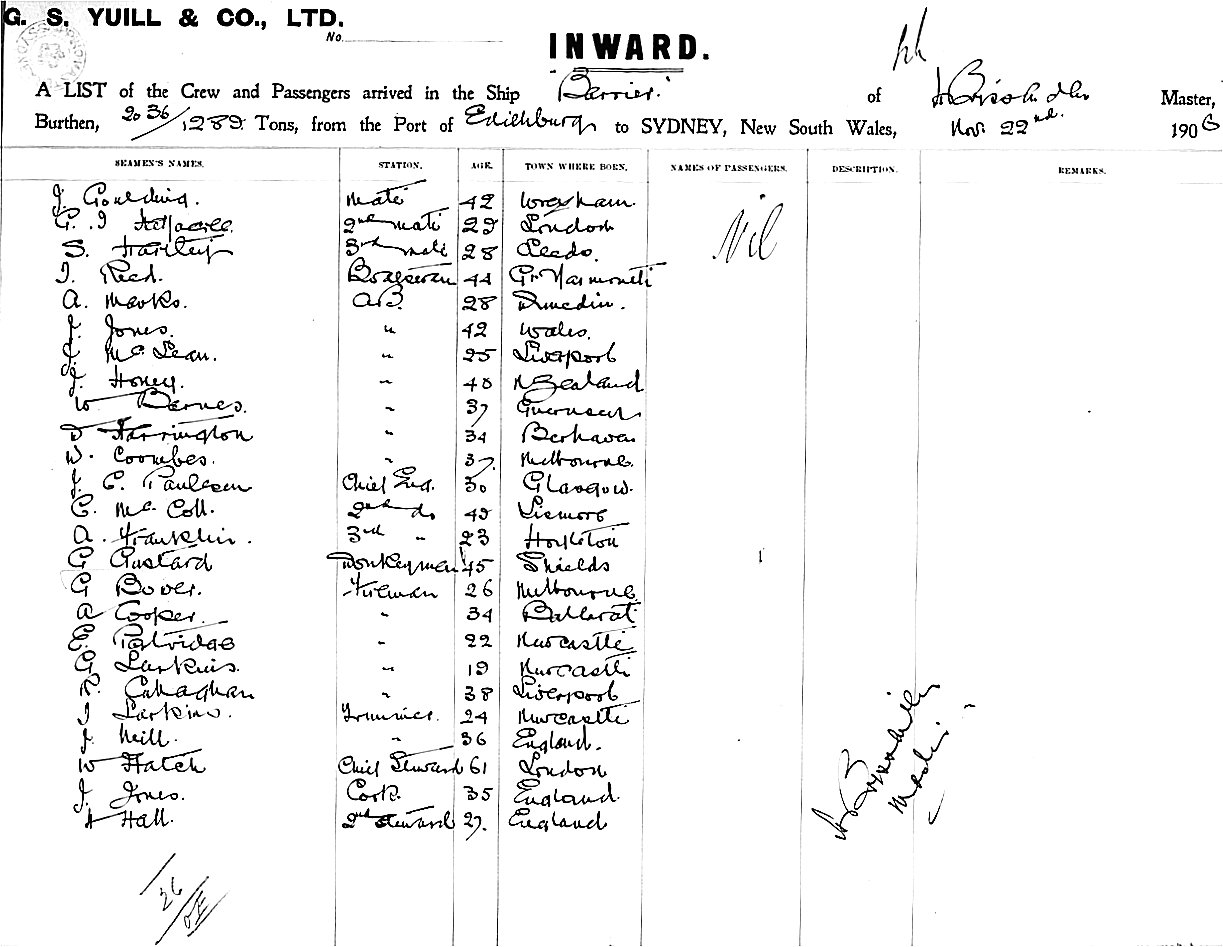 G. S. YUILL & CO., LTD.
No.
INWARD.
A LIST of the Crew and Passengers arrived in the Ship Barrier of Master,
Burthen, 2036/1289 Tons, from the Port of Edithburgh to SYDNEY, New South Wales, Nov. 22nd. 1906
SEAMEN'S NAMES. STATION. AGE. TOWN WHERE BORN. NAMES OF PASSENGERS. DESCRIPTION. REMARKS.
J. Goulding. Mate 42 Wrexham. Nil
G. J 2nd Mate 29 London
S. Hartley 3rd Mate 28 Leeds.
J. Reed. Boatswain 44 Gr. Yarmouth
A. Marks. A.B. 28 Dunedin.
J. Jones. " 42 Wales.
J. McLean. " 25 Liverpool
J. Honey. " 40 N Zealand
W Barnes. " 37 Guernsey
D Harrington " 34 Berhaven
W. Coombes. " 37. Melbourne.
J. C. Paulsen Chief Eng. 30 Glasgow.
C. McColl. 2nd do 49 Lismore
A. Franklin. 3rd " 23
G Gustard Donkeyman 45 Shields
G Bover. Fireman 26 Melbourne
A Cooper. " 34 Ballarat
E. Patridge " 22 Newcastle
G Larkins. " 19 Newcastle
Callaghan " 38 Liverpool
J Larkins. Trimmer. 24 Newcastle
J. Neill. " 36 England.
W Hatch Chief Steward 61 London
J. Jones. Cook. 35 England
A Hall. 2nd Steward 27. England
Master
26